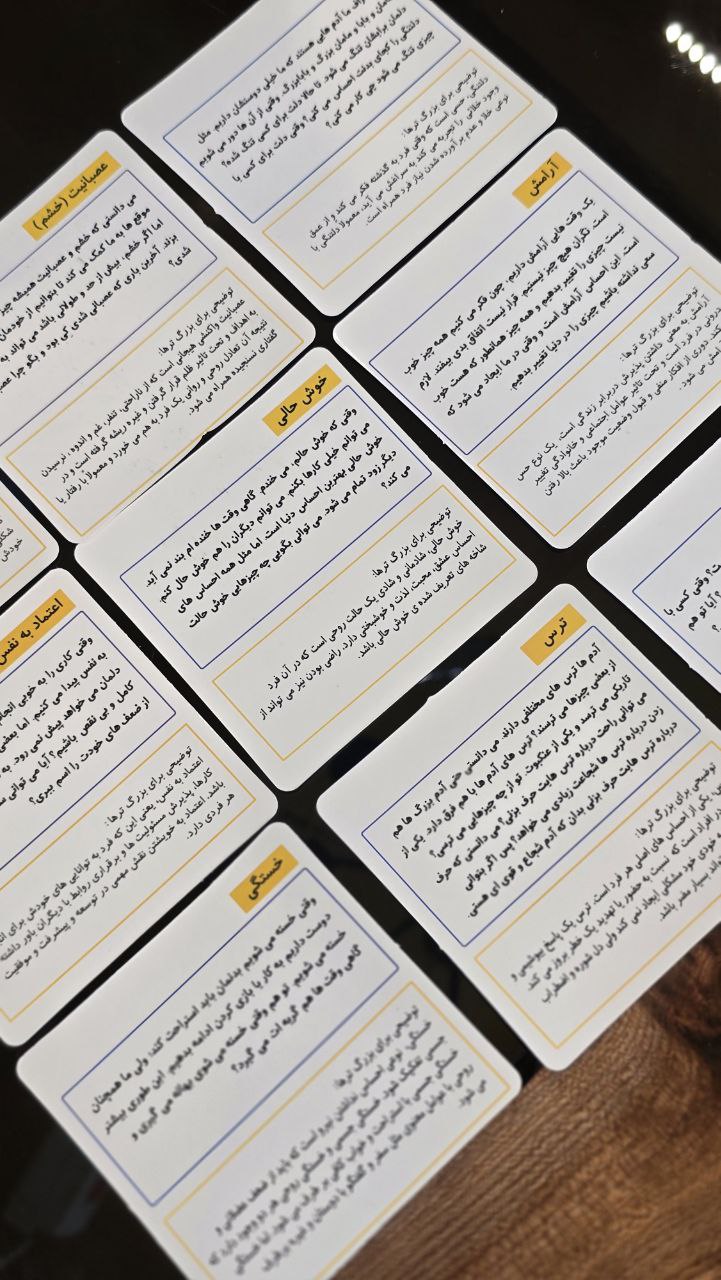 ما آدم هایی هستند که ما خیلی دوستشان داریم. مثل
مامان و بابا و مامان بزرگ و بابابزرگ. وقتی از آن ها دور می شویم
دلمان برایشان تنگ می شود. تا حالا دلت برای کسی تنگ شده؟
دلتنگی را کجای بدنت احساس می کنی؟ وقتی دلت برای کسی یا
چیزی تنگ می شود چی کار می کنی؟
توضیحی برای بزرگ ترها:
دلتنگی، حسی است که وقتی فرد به گذشته فکر می کند و از عمق
وجود خلائی را تجربه می کند به سراغش می آید. معمولاً دلتنگی با
نوعی خلا و عدم برآورده شدن نیاز فرد همراه است.
آرامش
یک وقت هایی آرامش داریم. چون فکر می کنیم همه چیز خوب
است. نگران هیچ چیز نیستیم. قرار نیست اتفاق بدی بیفتد. لازم
نیست چیزی را تغییر بدهیم و همه چیز همانطور که هست خوب
است. این احساس آرامش است و وقتی در ما ایجاد می شود که
سعی نداشته باشیم چیزی را در دنیا تغییر بدهیم.
توضیحی برای بزرگ ترها:
آرامش به معنی داشتن پذیرش دربرابر زندگی است. یک نوع حس
درونی در فرد است و تحت تاثیر عوامل اجتماعی و خانوادگی تغییر
دوری از افکار منفی و قبول وضعیت موجود باعث بالا رفتن
می شود.
عصبانیت (خشم)
می دانستی که خشم و عصبانیت همیشه چیز
موقع ها به ما کمک می کند تا بتوانیم از خودمان
اما اگر خشم، بیش از حد و طولانی باشد می تواند به
بزند. آخرین باری که عصبانی شدی کی بود و بگو چرا عصبا
شدی؟
توضیحی برای بزرگ ترها:
عصبانیت واکنشی هیجانی است که از ناراحتی، تنفر، غم و اندوه، نرسیدن
به اهداف و تحت تاثیر ظلم قرار گرفتن و غیره ریشه گرفته است و در
نتیجه آن تعادل روحی و روانی یک فرد به هم می خورد و معمولاً با رفتار یا
گفتاری نسنجیده همراه می شود.
خوش حالی
وقتی که خوش حالم، می خندم. گاهی وقت ها خنده ام بند نمی آید.
می توانم خیلی کارها بکنم. می توانم دیگران را هم خوش حال کنم.
خوش حالی بهترین احساس دنیا است. اما مثل همه احساس های
دیگر زود تمام می شود. می توانی بگویی چه چیزهایی خوش حالت
می کند؟
توضیحی برای بزرگ ترها:
خوش حالی، شادمانی و شادی یک حالت روحی است که در آن فرد
احساس عشق، محبت، لذت و خوشبختی دارد. راضی بودن نیز می تواند از
شاخه های تعریف شده ی خوش حالی باشد.
خودش
اعتماد به نفس
وقتی کاری را به خوبی انجام
به نفس پیدا می کنیم. اما بعضی
دلمان می خواهد پیش نمی رود. به
کامل و بی نقص باشیم؟ آیا می توانی سه
از ضعف های خودت را اسم ببری؟
توضیحی برای بزرگ ترها:
اعتماد به نفس، یعنی این که فرد به توانایی های خودش برای
کارها، پذیرش مسئولیت ها و برقراری روابط با دیگران باور داشته
باشد. اعتماد به خویشتن نقش مهمی در توسعه و پیشرفت و موفقیت
هر فردی دارد.
ترس
آدم ها ترس های مختلفی دارند. می دانستی حتی آدم بزرگ ها هم
از بعضی چیزها می ترسند؟ ترس های آدم ها با هم فرق دارد. یکی از
تاریکی می ترسد و یکی از عنکبوت. تو از چه چیزهایی می ترسی؟
می توانی راحت درباره ترس هایت حرف بزنی؟ می دانستی که حرف
زدن درباره ترس ها شجاعت زیادی می خواهد؟ پس اگر بتوانی
درباره ترس هایت حرف بزنی بدان که آدم شجاع و قوی ای هستی.
توضیحی برای بزرگ ترها:
یکی از احساس های اصلی هر فرد است. ترس یک پاسخ
افراد است که نسبت به حضور یا تهدید یک خطر بروز می کند.
خودی خود مشکلی ایجاد نمی کند ولی دل شوره و اضطراب
بسیار مضر باشد.
وقتی کسی با
آیا تو هم
خستگی
وقتی خسته می شویم بدنمان باید استراحت کند، ولی ما همچنان
دوست داریم به کار یا بازی کردن ادامه بدهیم. این طوری بیشتر
خسته می شویم. تو هم وقتی خسته می شوی بهانه می گیری و
گاهی وقت ها هم گریه ات می گیرد؟
توضیحی برای بزرگ ترها:
خستگی نوعی احساس نداشتن نیرو است که باید از ضعف عضلانی و
جسمی تفکیک شود. خستگی جسمی و خستگی روحی هر دو وجود دارد که
خستگی جسمی با استراحت و خواب کافی بر طرف می شود، اما خستگی
روحی با عوامل معنوی مثل سفر و گفتگو با دوستان و غیره برطرف
می شود.